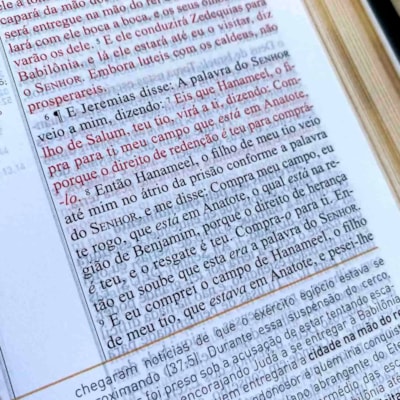 capará da mão do
será entregue na mão do re
lará com ele boca a boca, e os seus olho
5 E ele conduzirá Zedequias para
varão os dele.
Babilônia, e lá ele estará até eu o visitar, diz
o SENHOR. Embora luteis com os caldeus, não
prosperareis.
6 ¶ E Jeremias disse: A palavra do SENHOR
veio a mim, dizendo: 7 Eis que Hanameel, o fi-
lho de Salum, teu tio, virá a ti, dizendo: Com-
pra para ti meu campo que está em Anatote,
porque o direito de redenção é teu para comprá-
-lo.
8 Então Hanameel, o filho de meu tio veio
até mim no átrio da prisão conforme a palavra
do SENHOR, e me disse: Compra meu campo, eu
te rogo, que está em Anatote, o qual está na re-
gião de Benjamim, porque o direito de herança
é teu, e o resgate é teu. Compra-o para ti. En-
tão eu soube que esta era a palavra do SENHOR.
9 E eu comprei o campo de Hanameel, o filho
de meu tio, que estava em Anatote, e pesei-lhe
chegaram notícias de que o exército egípcio estava se
roximando (37.5). Durante essa suspensão do cerco,
foi preso sob a acusação de estar tentando esca-
ncorajando Judá a se entregar a Babilônia
entregaria a cidade na mão do re
donosor é quem iria conquist
plano abrangente do Ete
ermédio das esc